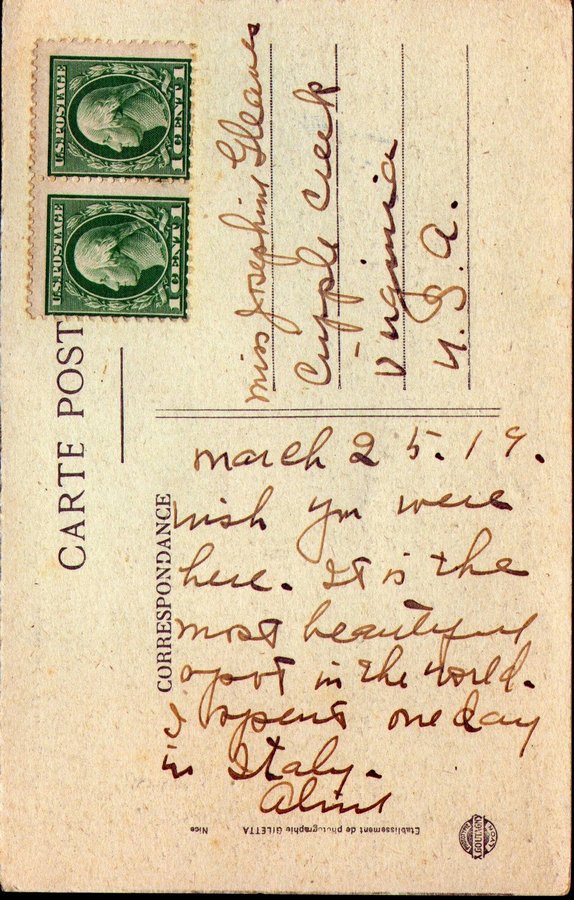 CARTE POSTALE
U.S. POSTAGE
1 CENT 1
U.S. POSTAGE
1 CENT 1
CORRESPONDANCE
march 25.19.
wish you were
here. It is the
most beautiful
spot in the world.
I spent one day
in Italy.
Miss Josephine Gleaves
Cripple Creek
Virginia
U.S.A.
Etablissement de photographie GILETTA
Nice